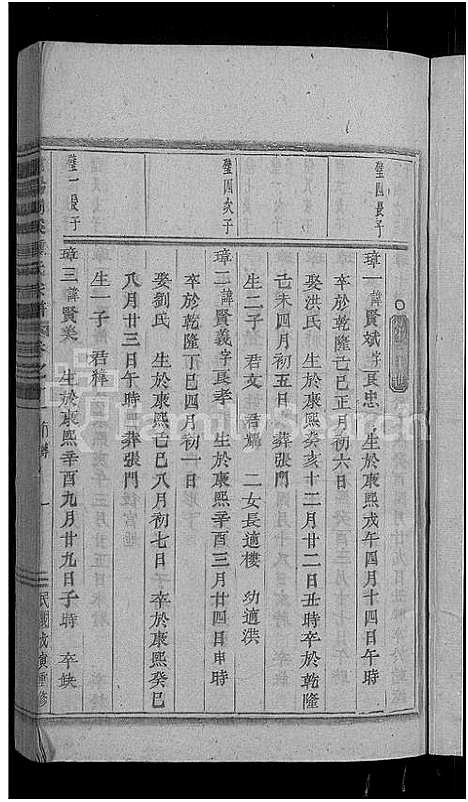 璧四長子
璋一 諱賢斌字良忠 生於康熙戊午四月十四日午時
卒於乾隆己巳正月初六日
娶洪氏 生於康熙癸亥十二月廿二日丑時卒於乾隆
己未四月初五日 葬張門
生二子 君文 君耀 二女長適樓 幼適洪
璧四次子
璋二 諱賢義字良孝 生於康熙辛酉三月廿四日申時
卒於乾隆丁巳四月初一日
娶劉氏 生於康熙己巳八月初七日 卒於康熙癸巳
八月廿三日午時 葬張門
生一子 君釋
璧一長子
璋三 諱賢美 生於康熙辛酉九月廿九日子時 卒缺
民國戊寅重修
FamilySearch